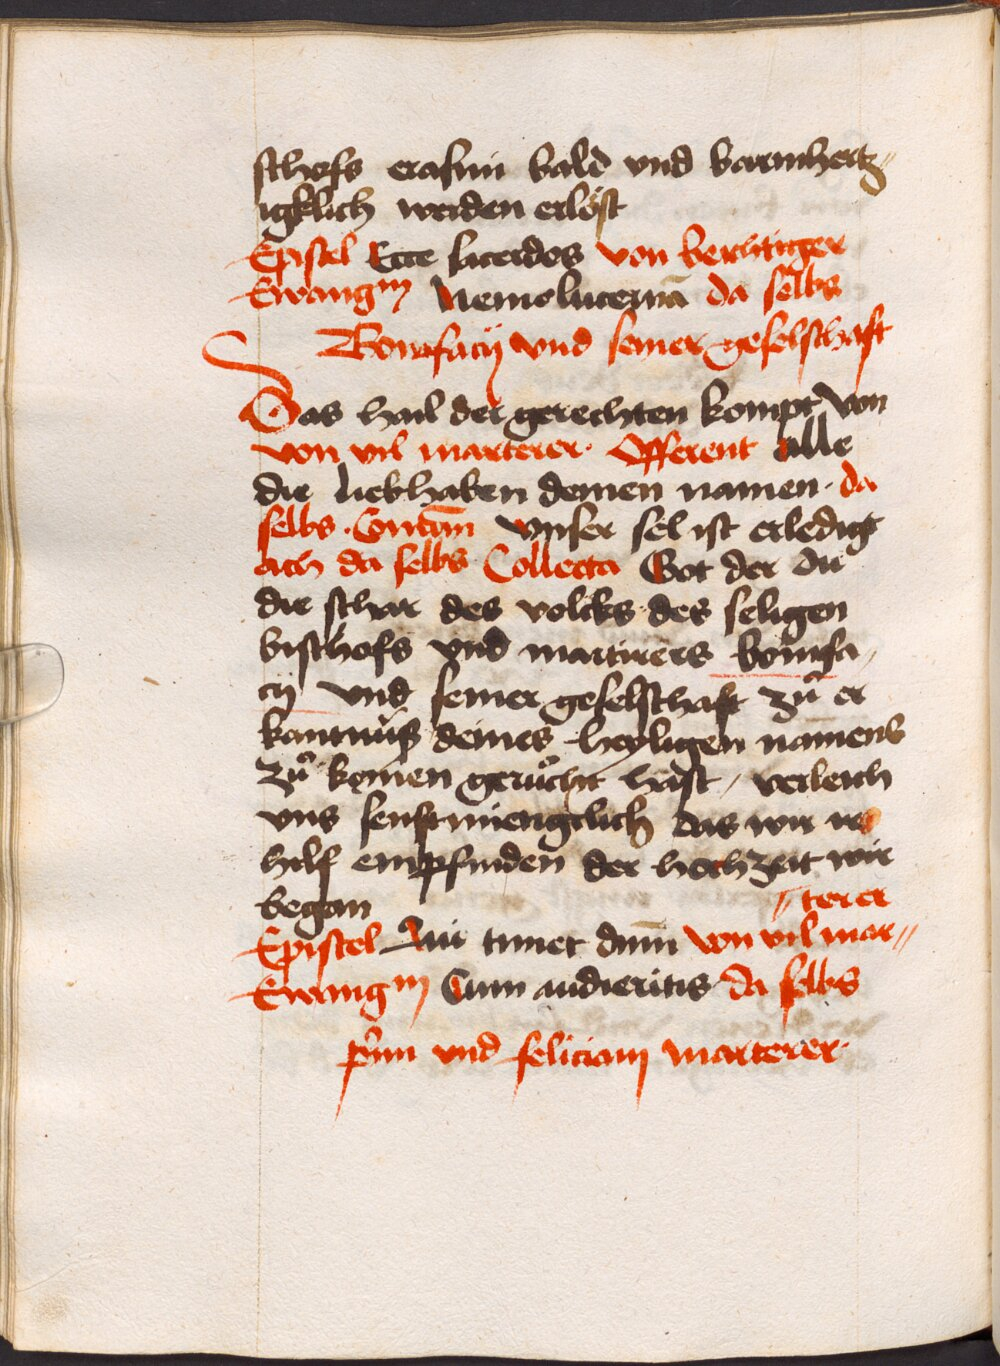 schofs erasmi bald vnd barmhertz„
igklich werden erlöst
Epistel Ecce sacerdos von berhtiger
Ewangm Nemo lucernā da selbs
Bonifacij vnd seiner geselschaft
Das hail der gerechten kompt von
von vil marterer. Offerent alle
die liebhaben deinen namen. da
selbs. Comū Vnser sel ist erledigt
ach da selbs Collecta Got der du
die schar des volcks des seligen
bischofs vnd martirers bonifa„
cij vnd seiner geselschaft zů er
kantnüß deines heyligen namens
zů komen gerůcht hast, verleich
vns senftmiengclich das wir ir
hilf empfinden der hochzeit wir
began
„terer
Epistel Qui timet dnm̄ von vil mar„
Ewangm Cum audieritis da selbs
p̄mi vnd feliciani marterer.